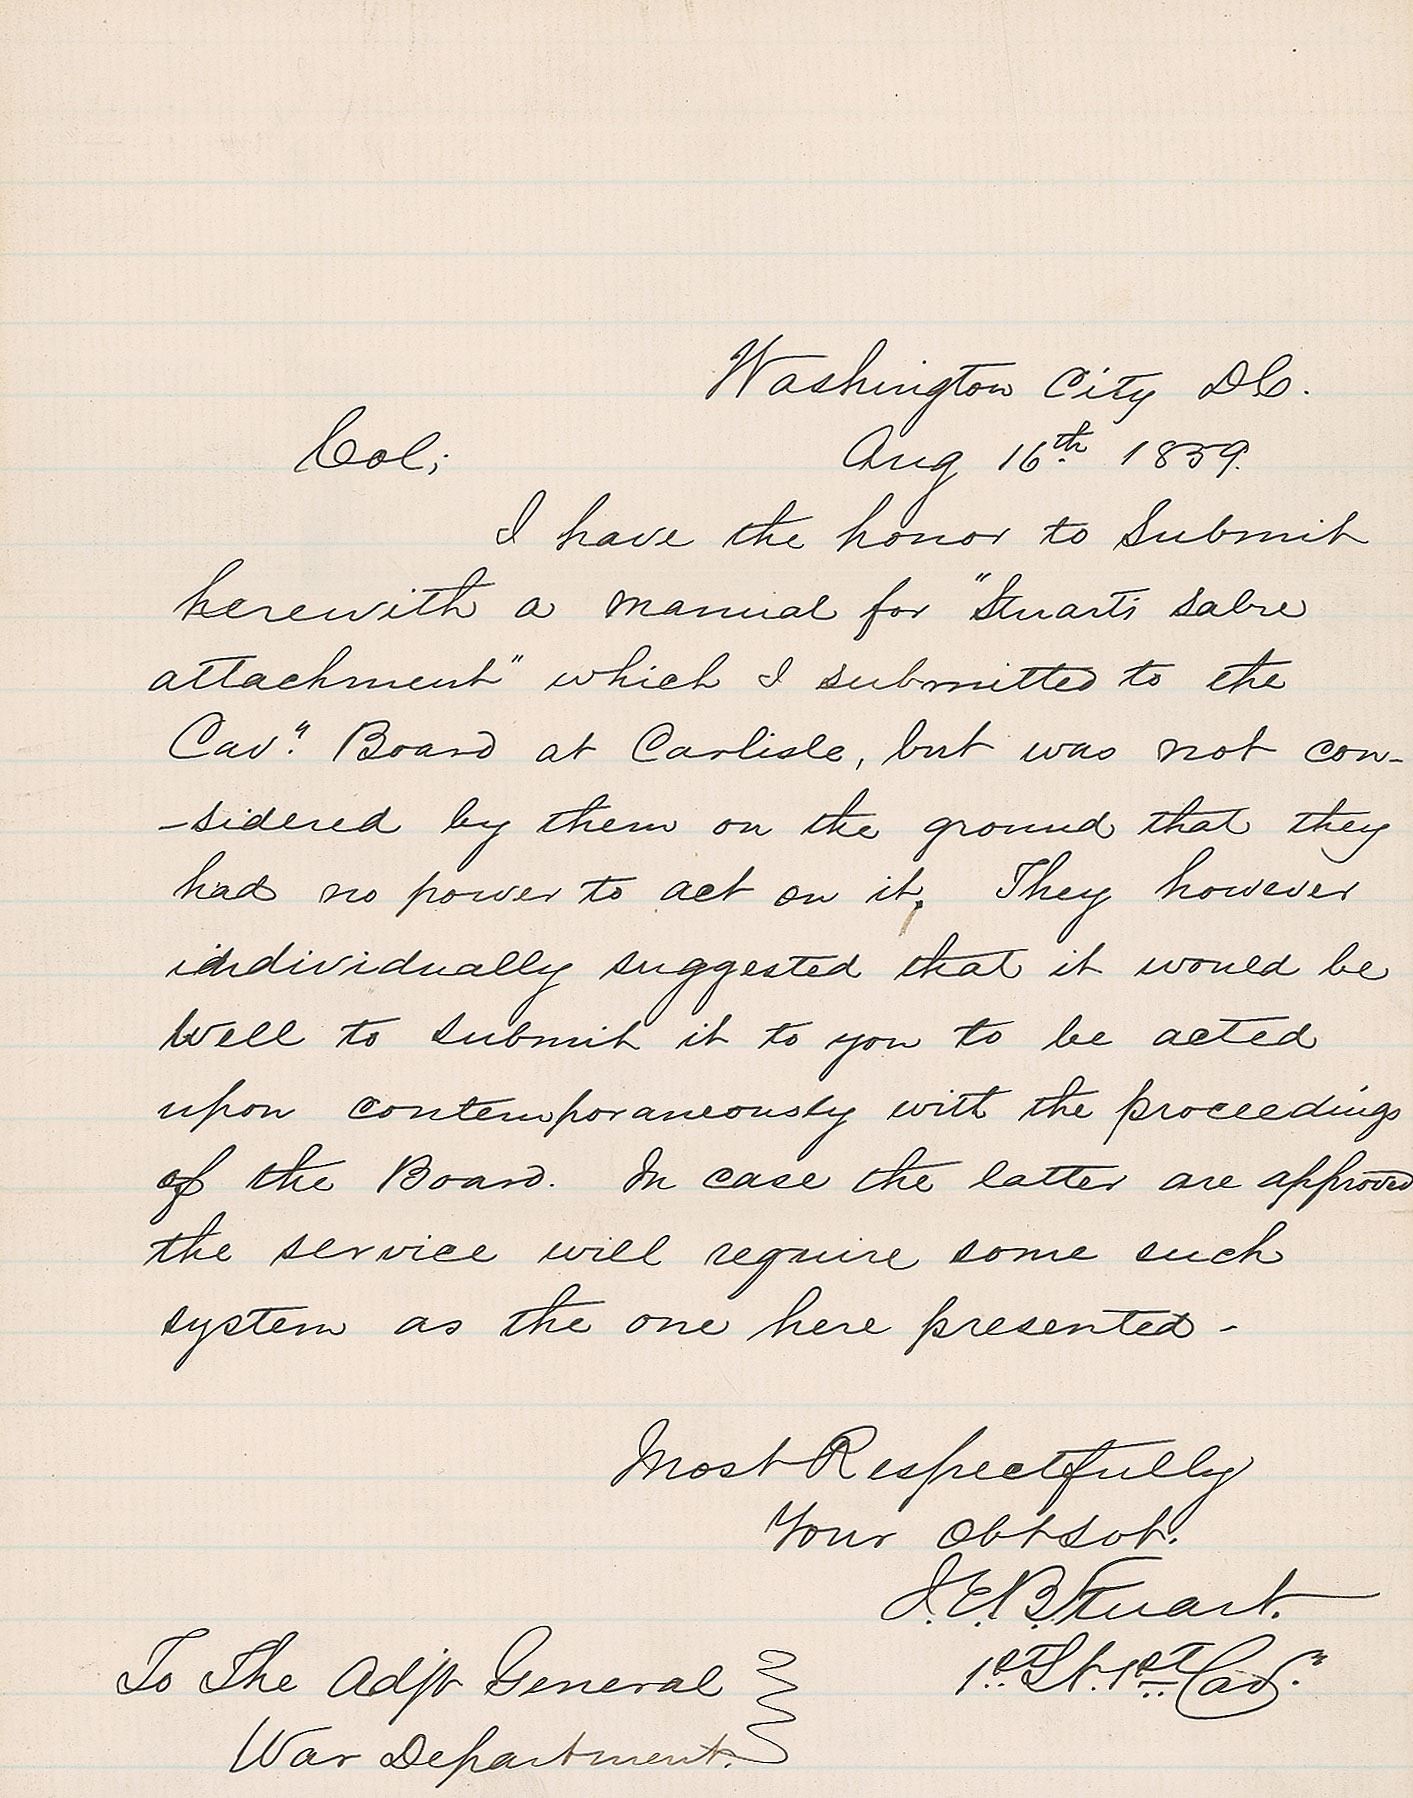 Washington City DC.
Col; Aug 16th 1859.
I have the honor to Submit
herewith a manual for "Stuart's Sabre
attachment" which I submitted to the
Cavy. Board at Carlisle, but was not con-
-sidered by them on the ground that they
had no power to act on it. They however
individually suggested that it would be
well to submit it to you to be acted
upon contemporaneously with the proceedings
of the Board. In case the latter are approved
the service will require some such
system as the one here presented -
Most Respectfully
Your Obt Svt.
J.E.B. Stuart.
1st Lt. 1st Cavy.
To The Adjt General
War Department.